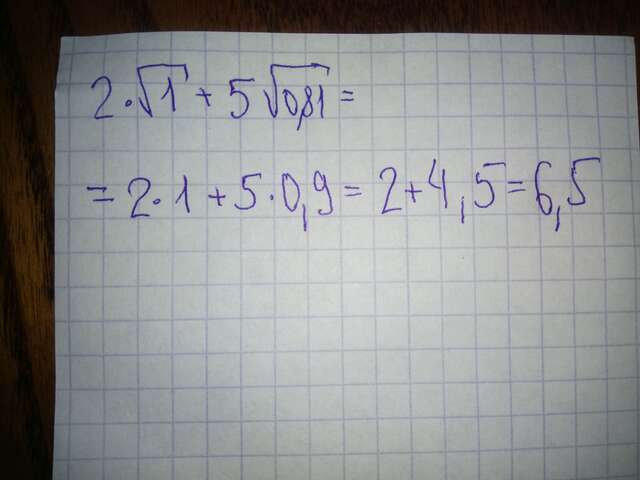 2·√1 + 5√0,81 =
= 2·1 + 5·0,9 = 2 + 4,5 = 6,5